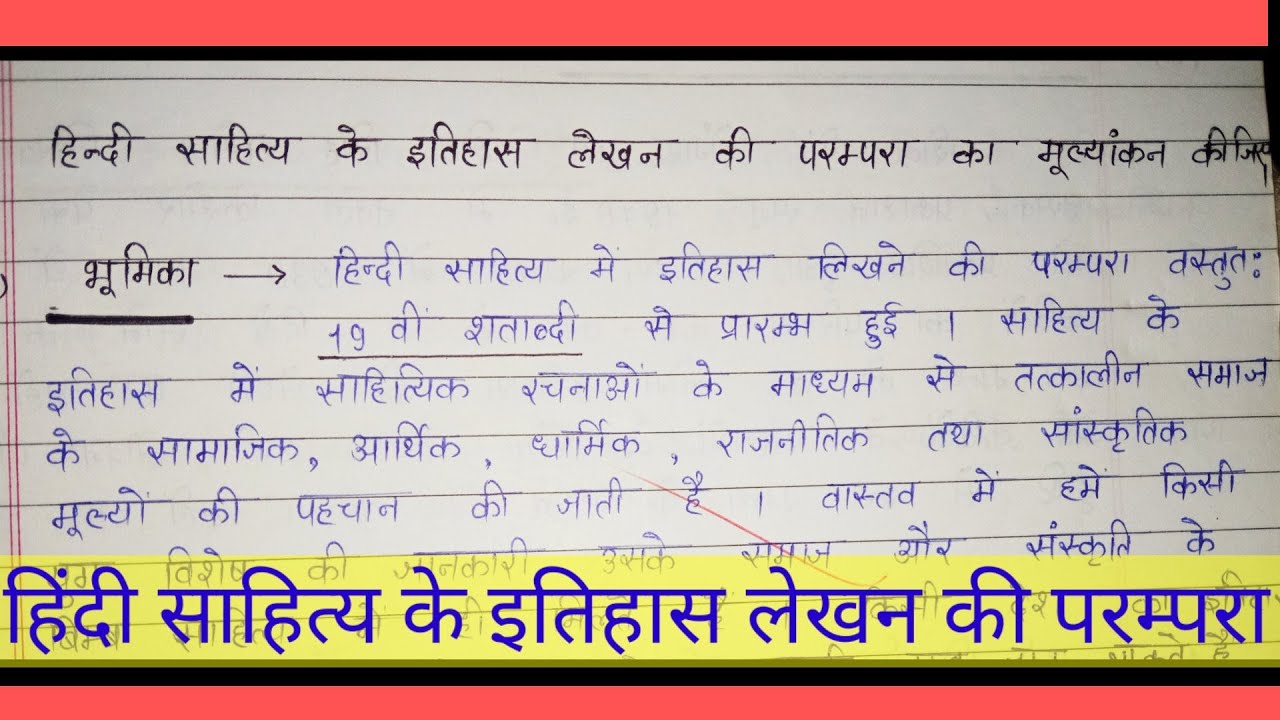 हिन्दी साहित्य के इतिहास लेखन की परम्परा का मूल्यांकन कीजिए
भूमिका → हिन्दी साहित्य में इतिहास लिखने की परम्परा वस्तुतः
19 वीं शताब्दी से प्रारम्भ हुई । साहित्य के
इतिहास में साहित्यिक रचनाओं के माध्यम से तत्कालीन समाज
के सामाजिक, आर्थिक, धार्मिक, राजनीतिक तथा सांस्कृतिक
मूल्यों की पहचान की जाती है । वास्तव में हमें किसी
युग विशेष की जानकारी उसके समाज और संस्कृति के
हिंदी साहित्य के इतिहास लेखन की परम्परा